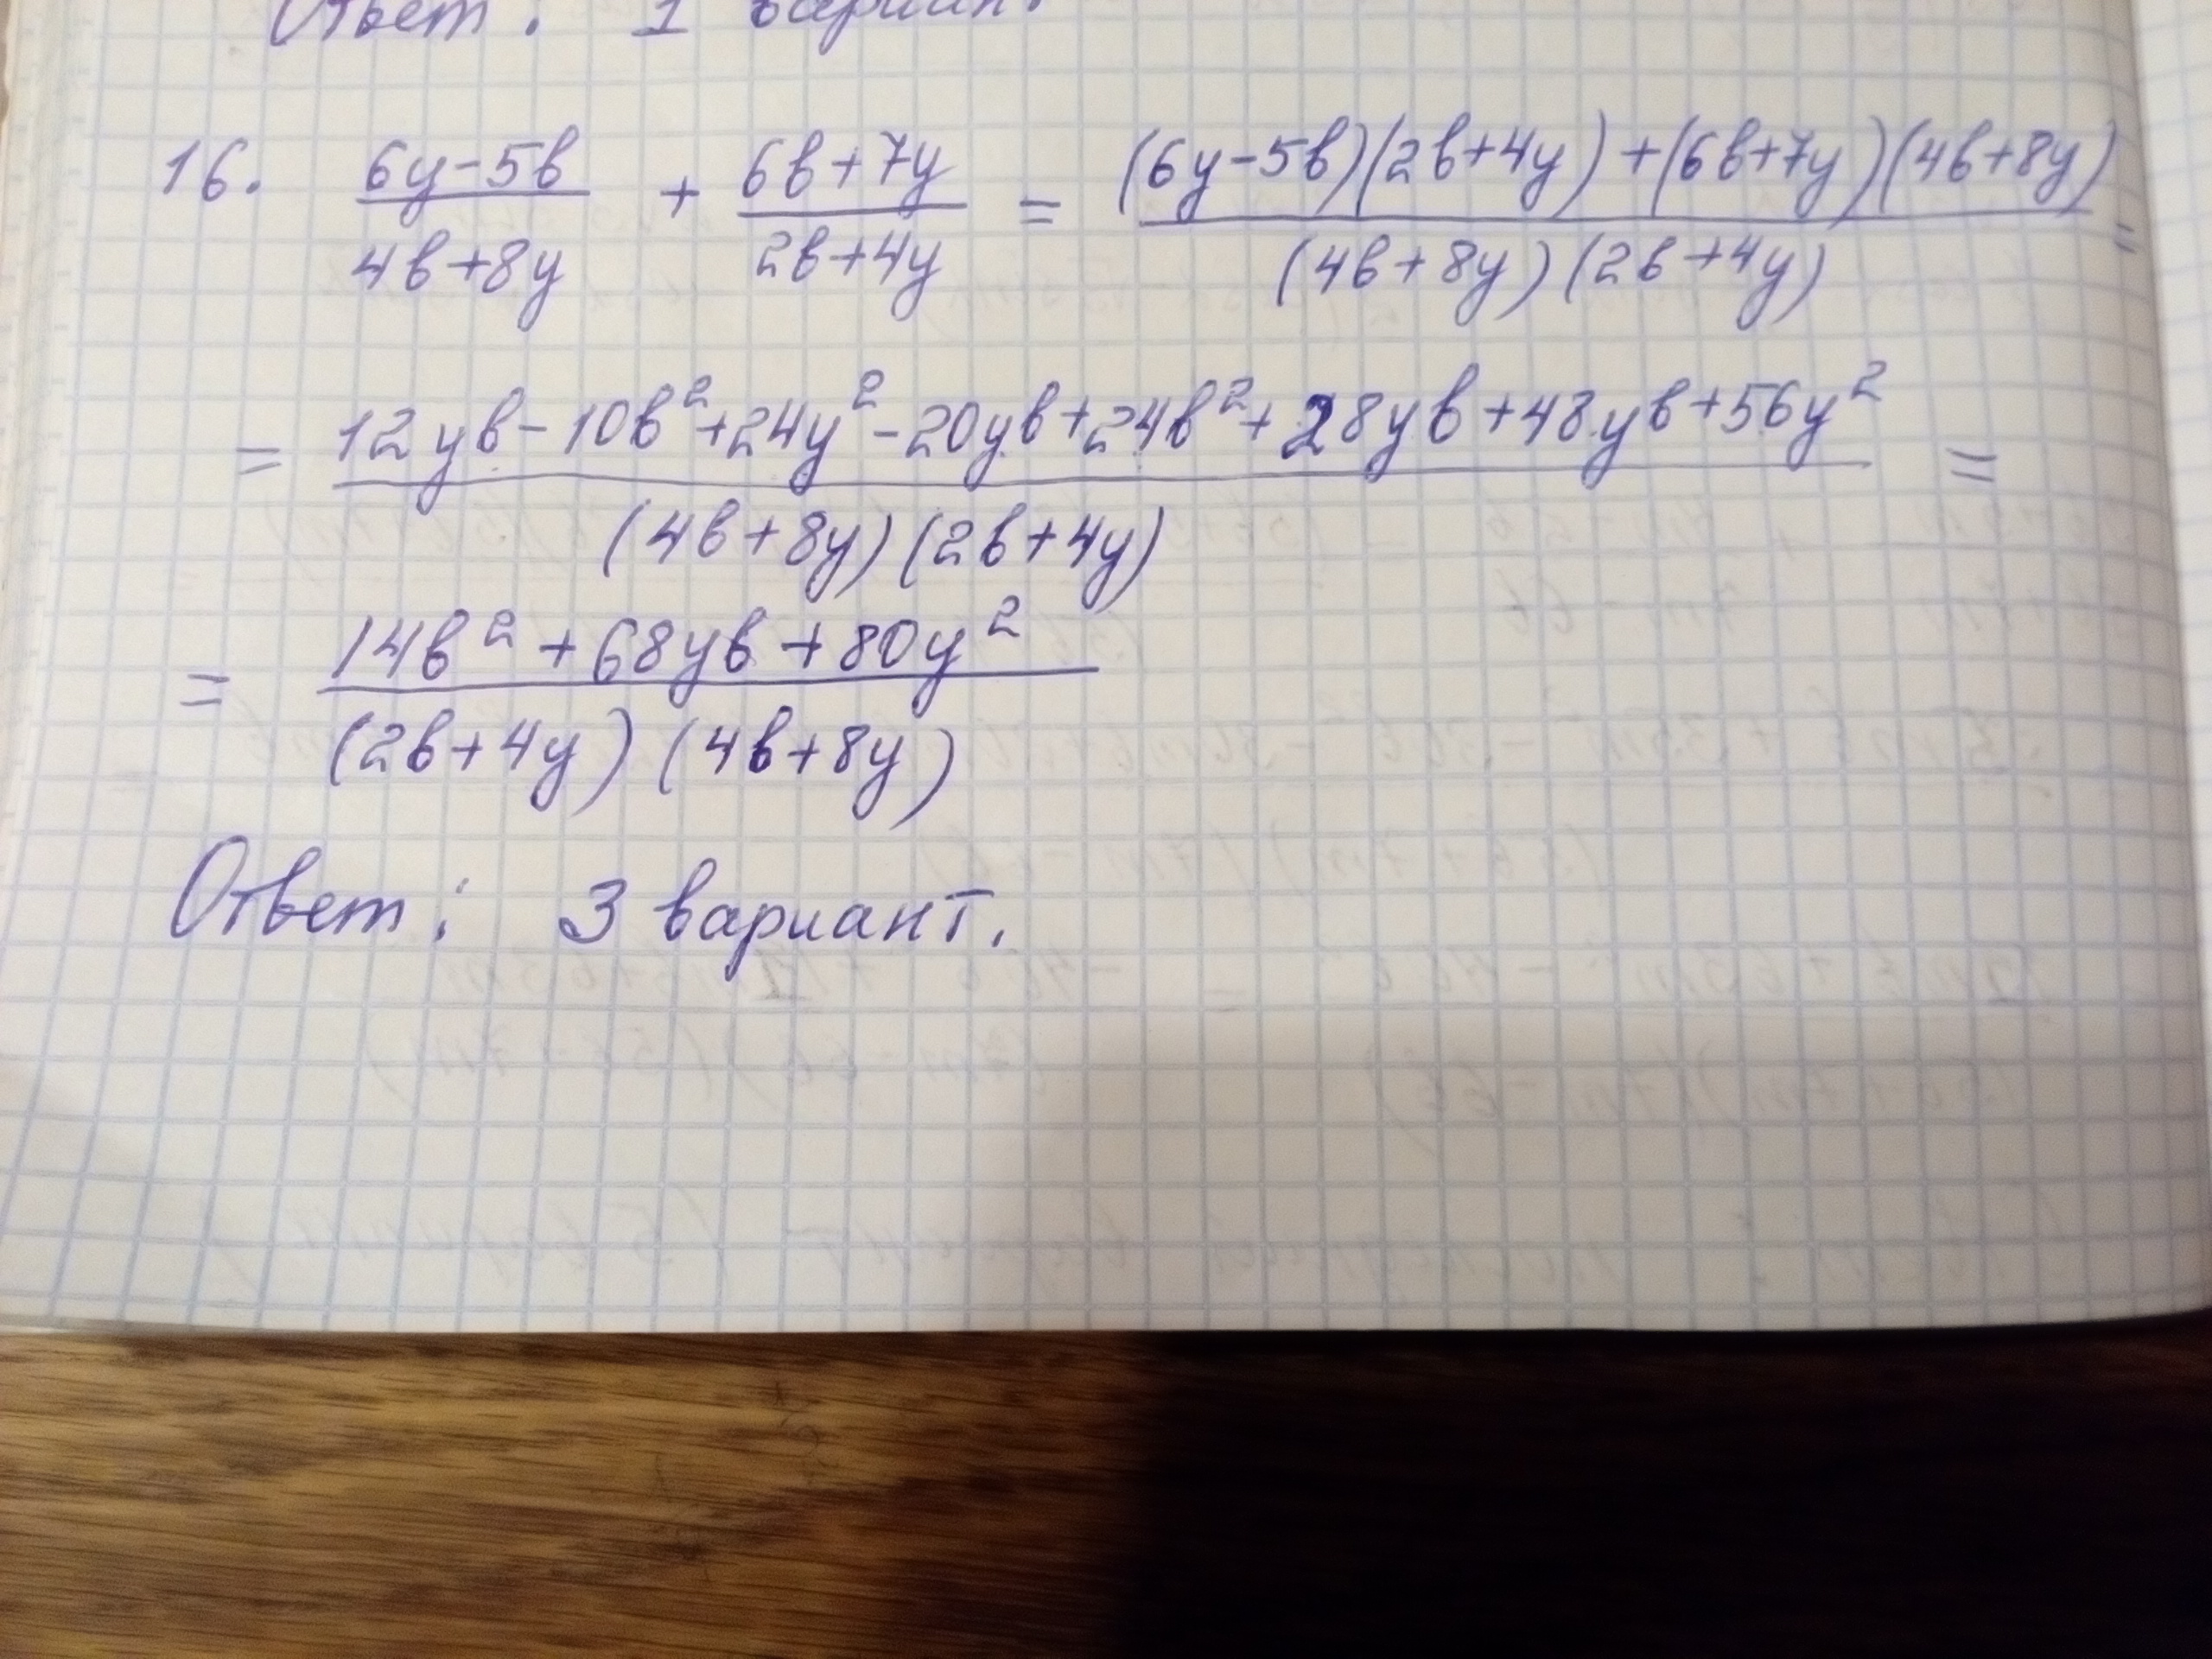 Ответ: 1 вариан.
16. (6y-5b)/(4b+8y) + (6b+7y)/(2b+4y) = ((6y-5b)(2b+4y)+(6b+7y)(4b+8y))/((4b+8y)(2b+4y)) =
= (12yb-10b²+24y²-20yb+24b²+28yb+48yb+56y²)/((4b+8y)(2b+4y)) =
= (14b²+68yb+80y²)/((2b+4y)(4b+8y))
Ответ: 3 вариант.